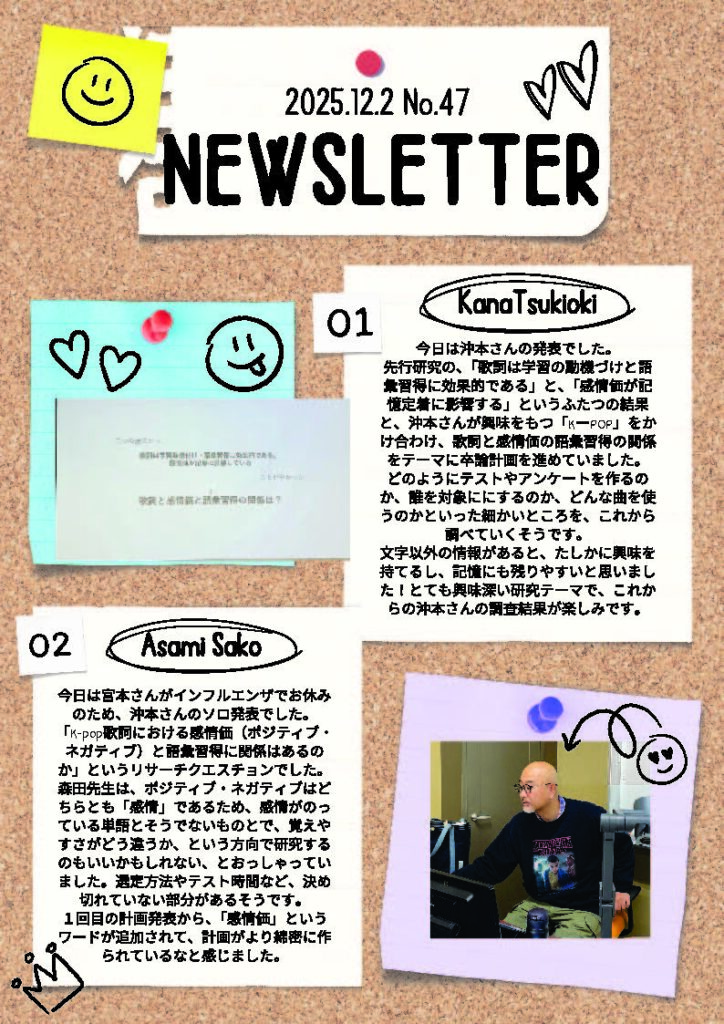 2025.12.2 No.47
NEWSLETTER
01
KanaTsukioki
今日は沖本さんの発表でした。
先行研究の、「歌詞は学習の動機づけと語
彙習得に効果的である」と、「感情価が記
憶定着に影響する」というふたつの結果
と、沖本さんが興味をもつ「KーPOP」をか
け合わけ、歌詞と感情価の語彙習得の関係
をテーマに卒論計画を進めていました。
どのようにテストやアンケートを作るの
か、誰を対象ににするのか、どんな曲を使
うのかといった細かいところを、これから
調べていくそうです。
文字以外の情報があると、たしかに興味を
持てるし、記憶にも残りやすいと思いまし
た！とても興味深い研究テーマで、これか
らの沖本さんの調査結果が楽しみです。
歌詞と感情価と語彙習得の関係は？
02
Asami Sako
今日は宮本さんがインフルエンザでお休み
のため、沖本さんのソロ発表でした。
「K-pop歌詞における感情価（ポジティブ・
ネガティブ）と語彙習得に関係はあるの
か」というリサーチクエスチョンでした。
森田先生は、ポジティブ・ネガティブはど
ちらとも「感情」であるため、感情がのっ
ている単語とそうでないものとで、覚えや
すさがどう違うか、という方向で研究する
のもいいかもしれない、とおっしゃってい
ました。選定方法やテスト時間など、決め
切れていない部分があるそうです。
１回目の計画発表から、「感情価」という
ワードが追加されて、計画がより綿密に作
られているなと感じました。